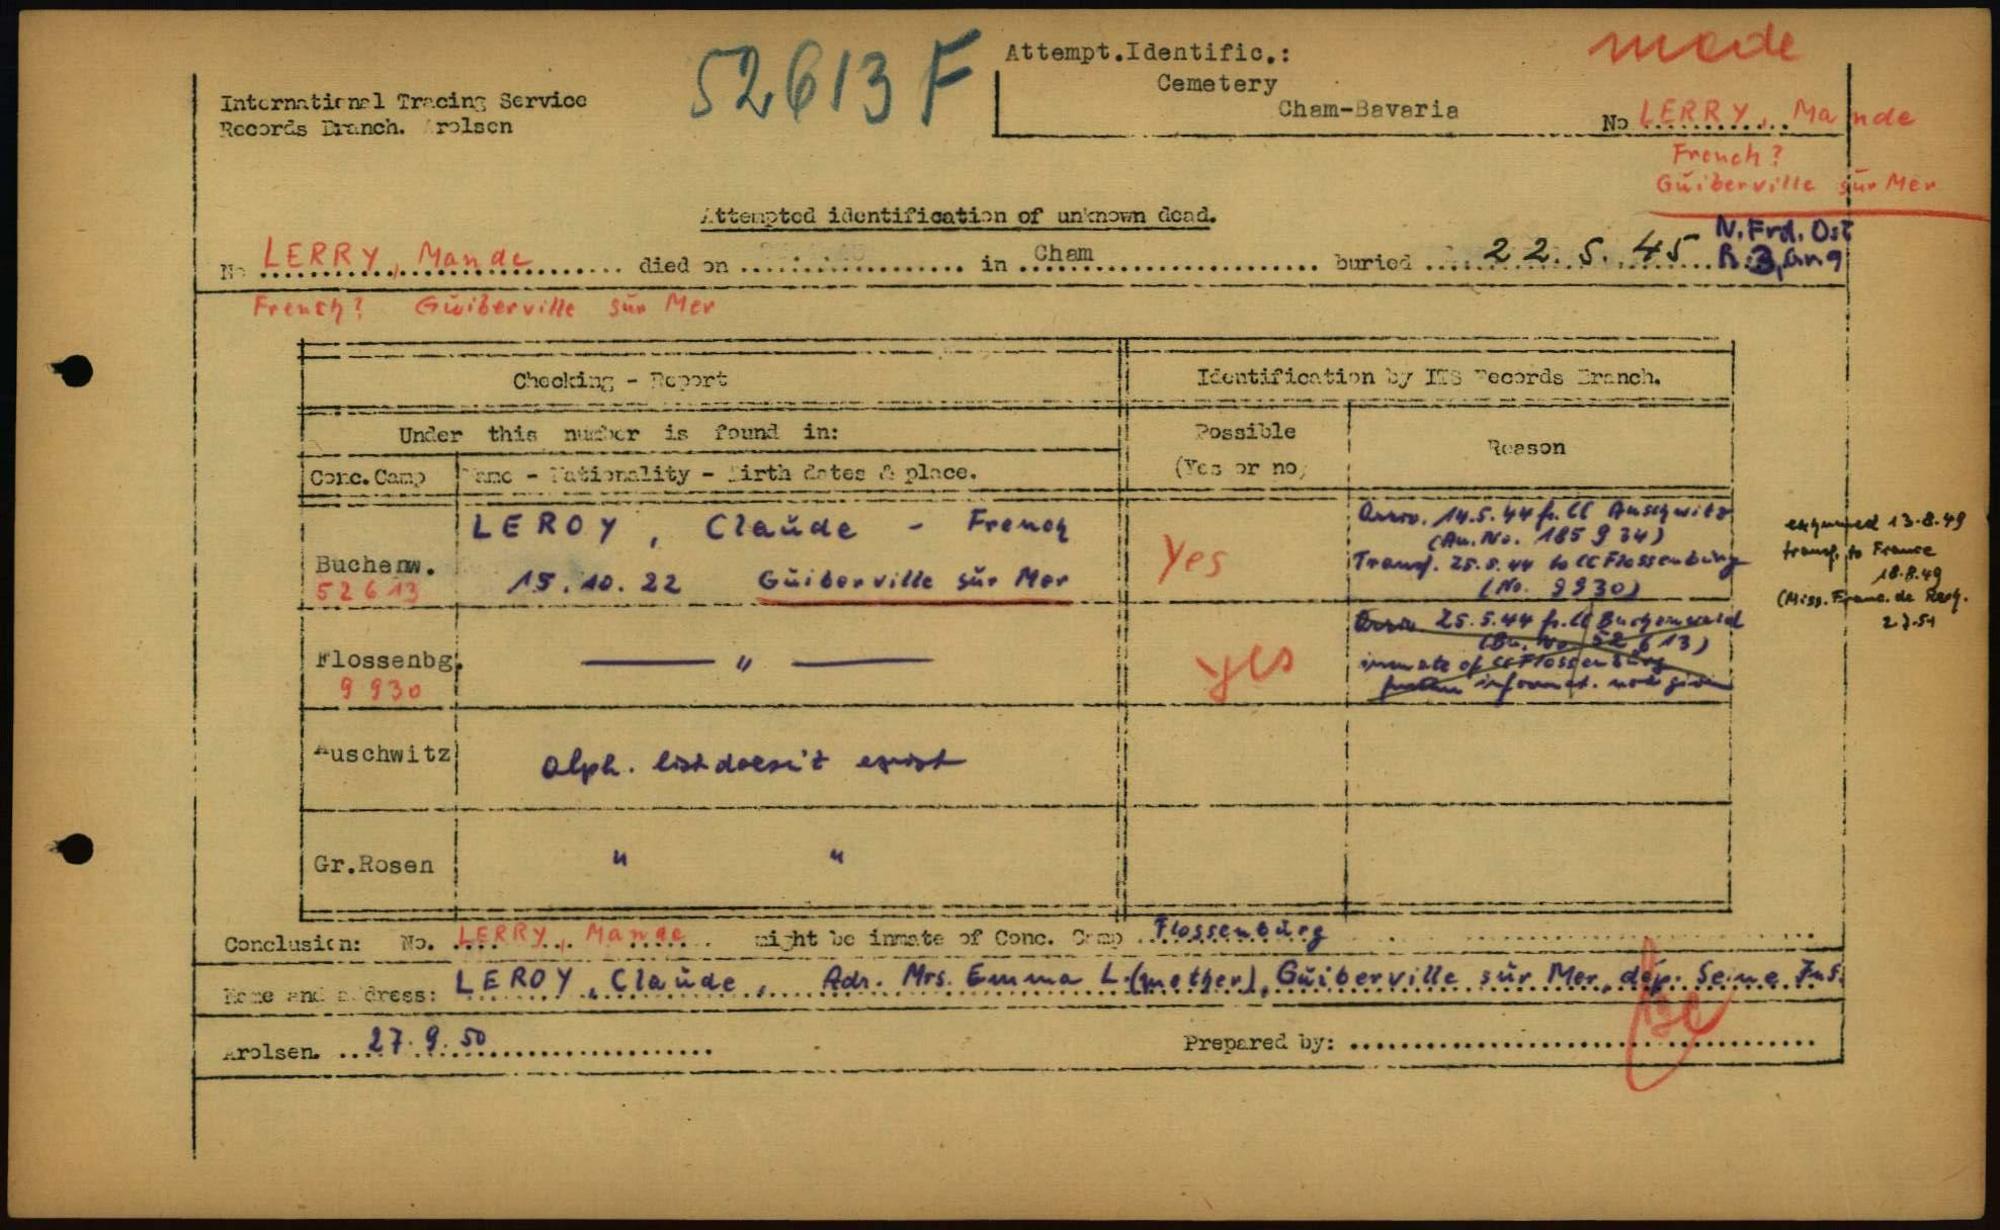 52613 F
Attempt.Identific.:
Cemetery
Cham-Bavaria
made
International Tracing Service
Records Branch. Arolsen
No LERRY, Mande
French?
Guiberville sur Mer
Attempted identification of unknown dead.
N. Frd. Ost
No LERRY, Mande died on in Cham buried 22. 5. 45
R. 3,
French? Guiberville sur Mer
Checking - Report
Identification by ITS Records Branch.
Under this number is found in:
Possible
(Yes or no)
Reason
Conc.Camp
Name - Nationality - Birth dates & place.
Buchenw.
52613
LEROY, Claude - French
15.10.22 Guiberville sur Mer
Yes
Arriv. 14.5.44 fr. CC Auschwitz
(Au. No. 185934)
Transf. 25.5.44 to CC Flossenburg
(No. 9930)
exhumed 13.8.49
transf. to France
18.8.49
(Miss. Franc. de Rech.
2.7.51
Flossenbg.
9930
— " —
yes
Arriv. 25.5.44 fr. CC Buchenwald
(Bu. No. 52613)
inmate of CC Flossenburg
further informat. not given
Auschwitz
alph. list doesn't exist
Gr.Rosen
" "
Conclusion: No. LERRY, Mande might be inmate of Conc. Camp Flossenburg
Name and address: LEROY, Claude, Adr. Mrs. Emma L. (mother), Guiberville sur Mer, dép. Seine Inf.
Arolsen. 27.9.50
Prepared by: